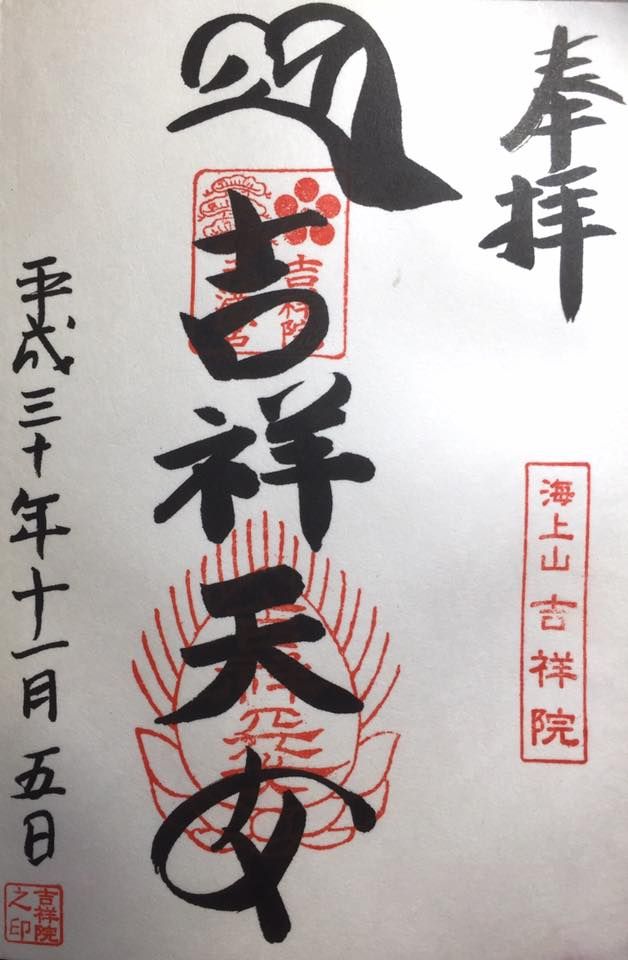 奉拝
海上山 吉祥院
吉祥天女
吉祥院
平成三十年十一月五日
吉祥院
之印